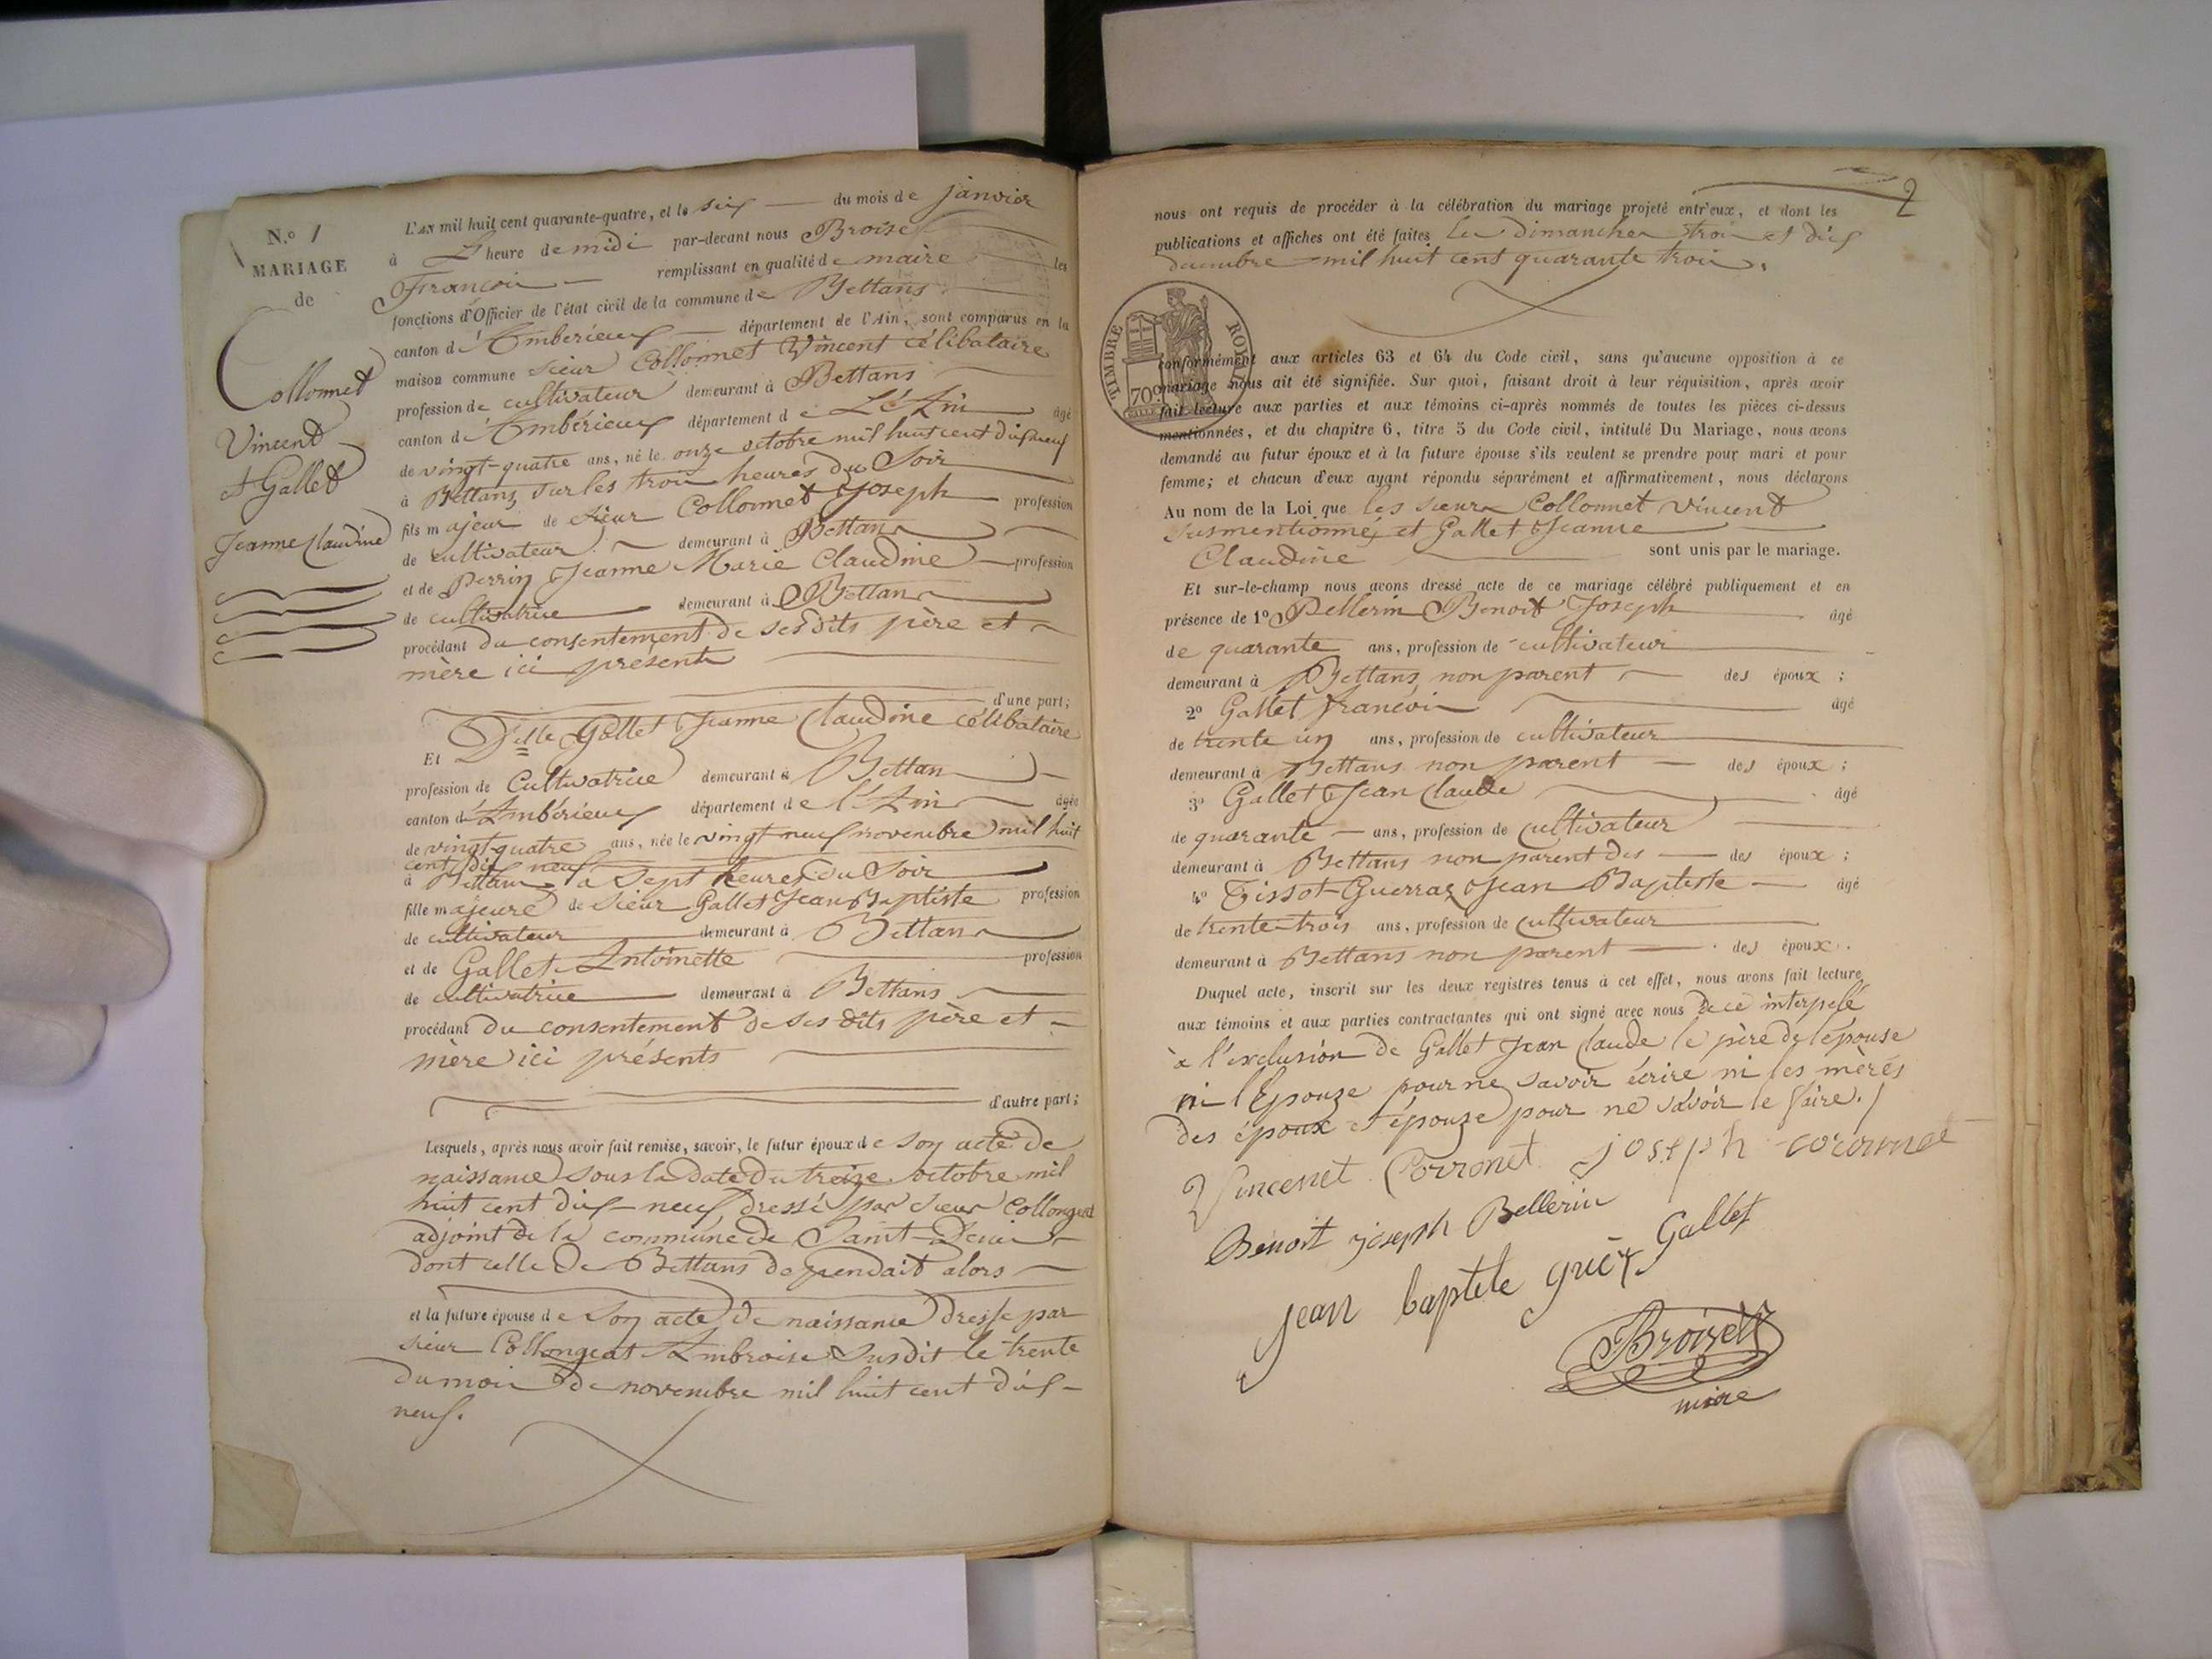 N.º 1
MARIAGE
de
Collonnet
Vincent
et Gallet
Jeanne Claudine
L'AN mil huit cent quarante-quatre, et le six du mois de janvier
à L'heure de midi par-devant nous Broise
François remplissant en qualité de maire les
fonctions d'Officier de l'état civil de la commune de Bettans
canton d'Ambérieux département de l'Ain, sont comparus en la
maison commune sieur Collonnet Vincent célibataire
profession de cultivateur demeurant à Bettans
canton d'Ambérieux département de L'Ain âgé
de vingt-quatre ans, né le onze octobre mil huit cent dix neuf
à Bettans, sur les trois heures du Soir
fils majeur de sieur Collonnet Joseph profession
de cultivateur demeurant à Bettans
et de Perrin Jeanne Marie Claudine profession
de cultivatrice demeurant à Bettans
procédant du consentement de ses dits père et
mère ici présents
d'une part;
Et Delle Gallet Jeanne Claudine célibataire
profession de Cultivatrice demeurant à Bettans
canton d'Ambérieux département de l'Ain âgée
de vingt-quatre ans, née le vingt neuf novembre mil huit
cent dix neuf
à Bettans à Sept heures du Soir
fille majeure de sieur Gallet Jean Baptiste profession
de cultivateur demeurant à Bettans
et de Gallet Antoinette profession
de cultivatrice demeurant à Bettans
procédant du consentement de ses dits père et
mère ici présents
d'autre part;
Lesquels, après nous avoir fait remise, savoir, le futur époux de son acte de
naissance sous la date du treize octobre mil
huit cent dix-neuf dressé par sieur Collongeat
adjoint de la commune de Saint-Denis
dont celle de Bettans dépendait alors
et la future épouse de son acte de naissance dressé par
sieur Collongeat Ambroise susdit le trente
du mois de novembre mil huit cent dix-
neuf.
2
nous ont requis de procéder à la célébration du mariage projeté entr'eux, et dont les
publications et affiches ont été faites les Dimanches trois et dix
décembre mil huit cent quarante trois.
TIMBRE ROYAL
70c
conformément aux articles 63 et 64 du Code civil, sans qu'aucune opposition à ce
mariage nous ait été signifiée. Sur quoi, faisant droit à leur réquisition, après avoir
fait lecture aux parties et aux témoins ci-après nommés de toutes les pièces ci-dessus
mentionnées, et du chapitre 6, titre 5 du Code civil, intitulé Du Mariage, nous avons
demandé au futur époux et à la future épouse s'ils veulent se prendre pour mari et pour
femme; et chacun d'eux ayant répondu séparément et affirmativement, nous déclarons
Au nom de la Loi que les sieurs Collonnet Vincent
susmentionné, et Gallet Jeanne
Claudine sont unis par le mariage.
Et sur-le-champ nous avons dressé acte de ce mariage célébré publiquement et en
présence de 1º Bellerin Benoit Joseph âgé
de quarante ans, profession de cultivateur
demeurant à Bettans, non parent des époux;
2º Gallet François âgé
de trente un ans, profession de cultivateur
demeurant à Bettans non parent des époux;
3º Gallet Jean Claude âgé
de quarante ans, profession de cultivateur
demeurant à Bettans non parent des des époux;
4º Tissot-Guerraz Jean Baptiste âgé
de trente-trois ans, profession de cultivateur
demeurant à Bettans non parent des époux.
Duquel acte, inscrit sur les deux registres tenus à cet effet, nous avons fait lecture
aux témoins et aux parties contractantes qui ont signé avec nous de ce interpelé
à l'exclusion de Gallet Jean Claude le père de l'épouse
ni l'Epouze pour ne savoir écrire ni les mères
des époux et épouze pour ne savoir le faire./
Vincenet Corronet joseph
Benoit joseph Bellerin
Gallet
jean baptete
Broizet
mire